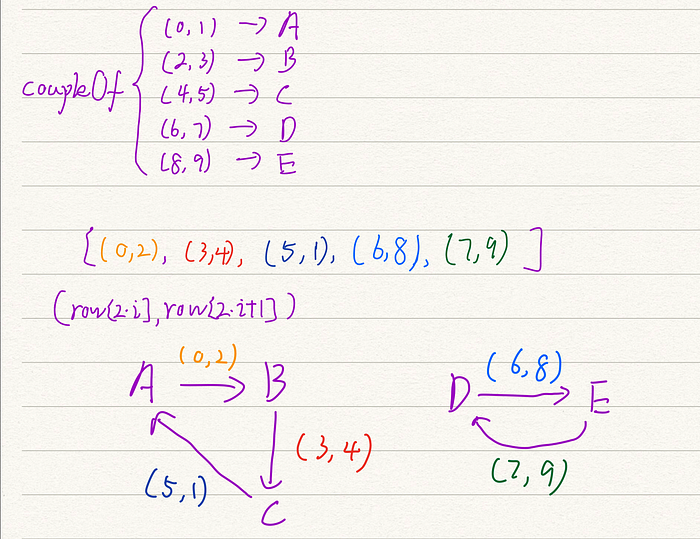 coupleOf { (0,1) → A
(2,3) → B
(4,5) → C
(6,7) → D
(8,9) → E
[(0,2), (3,4), (5,1), (6,8), (7,9)]
(row[2·i], row[2·i+1])
A (0,2) B
D (6,8) E
(3,4)
(5,1)
(7,9)
C